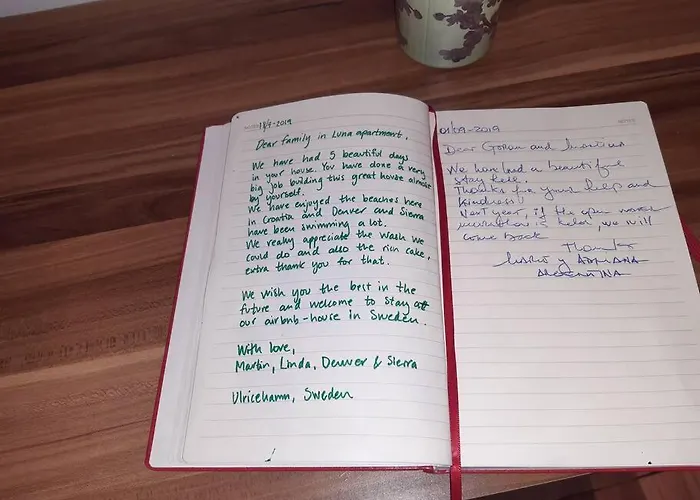 1/9-2019
Dear family in Luna apartment,
We have had 5 beautiful days
in your house. You have done a very
big job building this great house almost
by yourself.
We have enjoyed the beaches here
in Croatia and Denver and Sierra
have been swimming a lot.
We really appreciate the wash we
could do and also the rich cake,
extra thank you for that.
We wish you the best in the
future and welcome to stay at
our airbnb-house in Sweden.
With love,
Martin, Linda, Denver & Sierra
Ulricehamn, Sweden
01/09-2019
Dear Goran and
We had a beautiful
stay here.
Thanks for your help and
kindness!
Next year, if the open water
is here, we will
come back
Thanks
Mario y Adriana
ARGENTINA